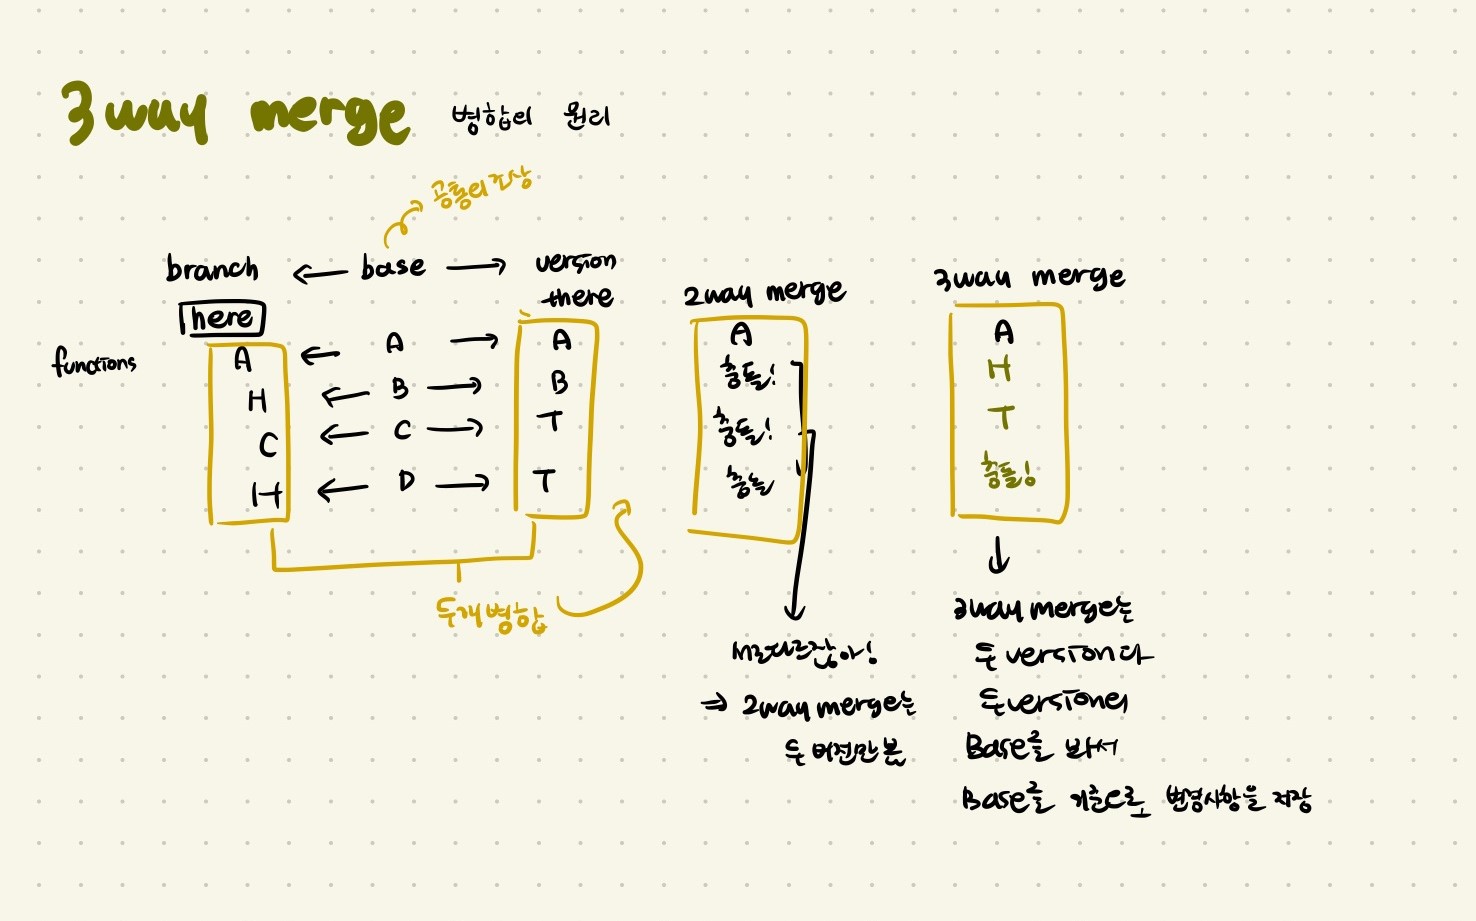 3way merge 병합의 원리
공통의 조상
branch ← base → version
here there
functions
A ← A → A
H ← B → B
C ← C → T
H ← D → T
두개 병합
2way merge
A
충돌!
충돌!
충돌
서로 다르잖아!
⇒ 2way merge는
두 버전만 봄
3way merge
A
H
T
충돌!
3way merge는
두 version과
두 version의
Base를 봐서
Base를 기준으로 변경사항을 저장